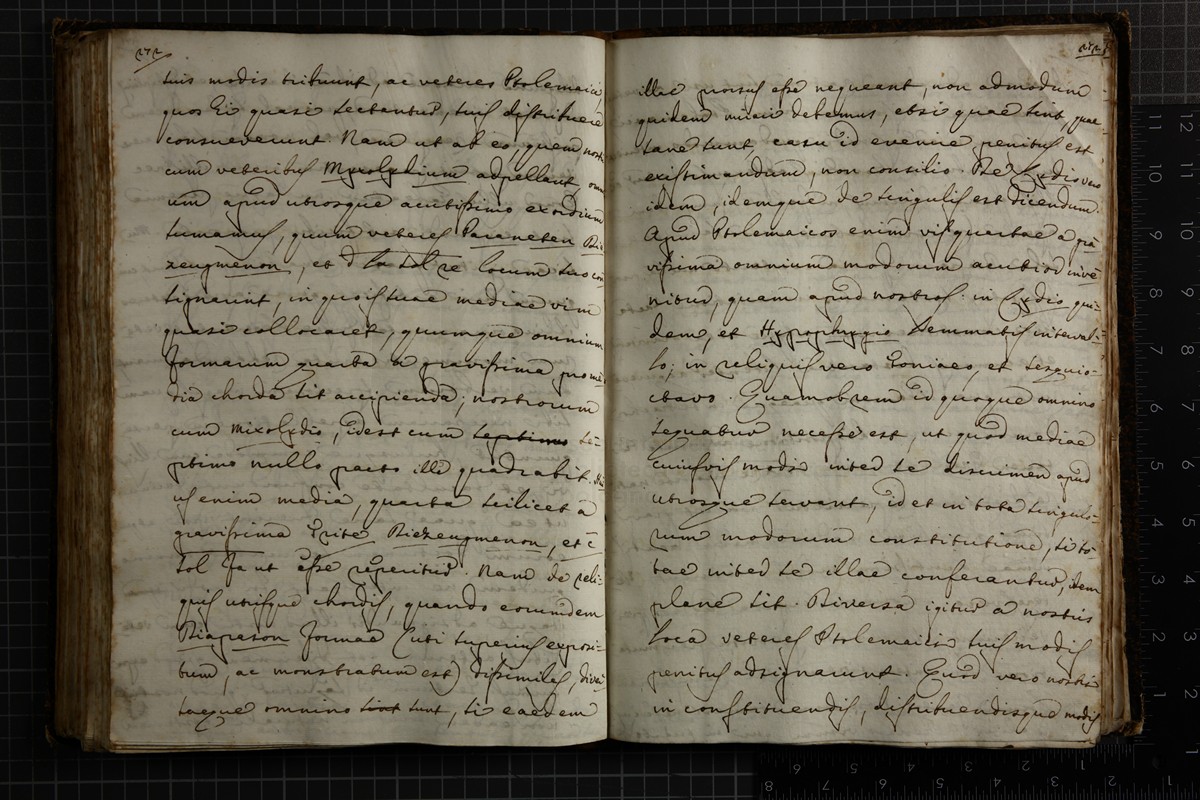 272
suis modis tribuunt, ac veteres Ptolemaici,
quos Ei quasi sectantur, suis distribuere
consueverunt. Nam ut ab eo, quem nostri
cum veteribus Myxolydium adpellant, omni
um apud utrosque acutissimo exordium
sumamus, quum veteres Paraneten Di
zeugmenon, et d la sol re locum suo con
signarint, in quo is suae mediae vim
quasi collocaret, quumque omnium
formarum quarta à gravissima pro me
dia chorda sit accipienda; nostrorum
cum mixolydio, idest cum septimo se-
ptimo nullo pacto ille quadrabit.
us enim media, quarta scilicet à
gravissima Trite Diezeugmenon, et c
sol fa ut esse reperitur. Nam de reli-
quis utrisque chordis, quando eorumdem
Diapason formae (uti superius exposi-
tum, ac monstratum est) dissimiles, diver
saeque omnino sunt, si eaedem
illae prorsus esse nequeant, non admodum
quidem mirari debemus, etsi quae sint, quae-
tane sunt, casu id evenire penitus est
existimandum, non consilio. De Lydio vero
idem, idemque de singulis est dicendum.
Apud Ptolemaicos enim vis quartae a gra
vissima omnium modorum acutior inve-
nitur, quam apud nostros. in Lydio qui-
dem, et Hypophrygio Lemmatis interval-
lo; in reliquis vero Toniaeo, et sesquio-
ctavo. Quamobrem id quoque omnino
sequatur necesse est, ut quod mediae
cuiusvis modi inter se discrimen apud
utrosque servant, id et in tota singulo-
rum modorum constitutione, si to-
tae inter se illae conferantur, idem
plane sit. Diversa igitur a nostris
loca veteres Ptolemaici suis modis
penitus adsignarunt. Quod vero nostri
in constituendis, distribuendisque modis